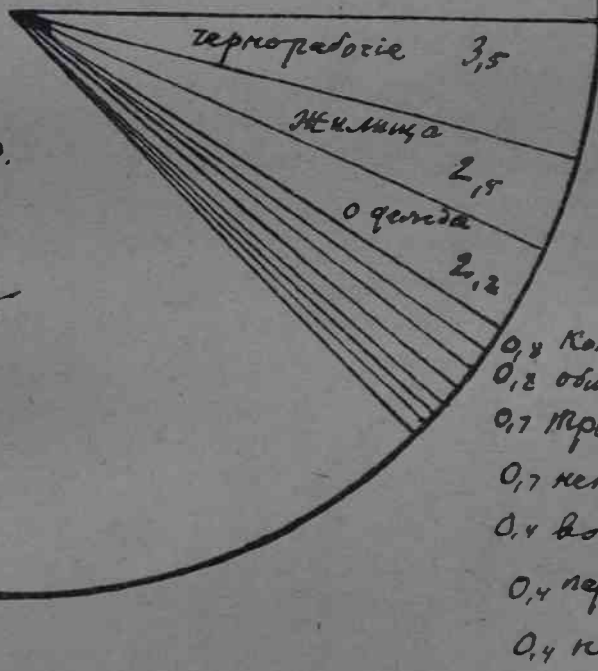 чернорабочіе 3,5
Жилища
2,5
одежда
2,2
0,8 Ко
0,8 общ
0,7 Тра
0,7 не
0,4 во
0,4 пер
0,4 н